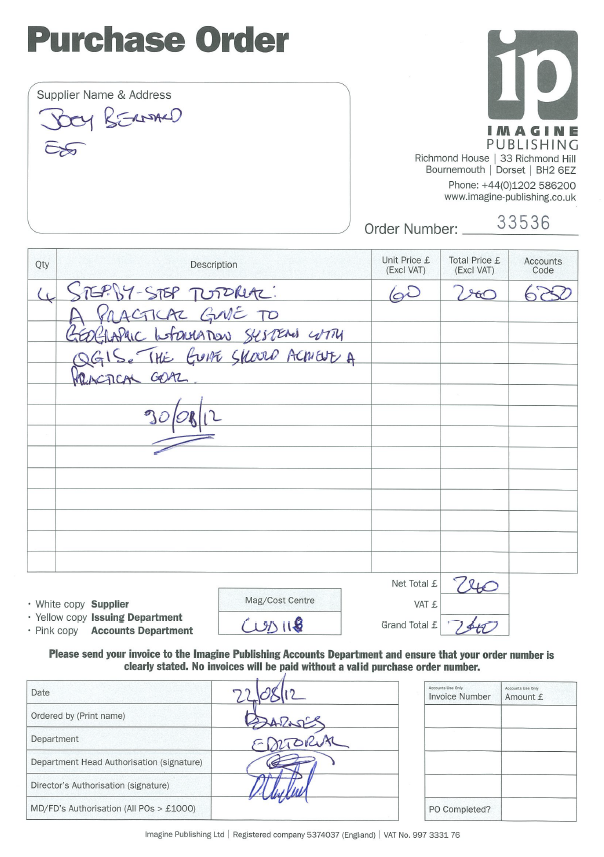 Purchase Order
ip
IMAGINE
PUBLISHING
Richmond House | 33 Richmond Hill
Bournemouth | Dorset | BH2 6EZ
Phone: +44(0)1202 586200
www.imagine-publishing.co.uk
Supplier Name & Address
JOEY BERNARD
Order Number: 33536
Qty Description Unit Price £ (Excl VAT) Total Price £ (Excl VAT) Accounts Code
4 STEP-BY-STEP TUTORIAL: 60 240 6250
A PRACTICAL GUIDE TO
GEOGRAPHIC INFORMATION SYSTEMS WITH
QGIS. THE GUIDE SHOULD ACHIEVE A
PRACTICAL GOAL.
30/08/12
Net Total £ 240
VAT £
Grand Total £ 240
Mag/Cost Centre
LUD118
· White copy Supplier
· Yellow copy Issuing Department
· Pink copy Accounts Department
Please send your invoice to the Imagine Publishing Accounts Department and ensure that your order number is
clearly stated. No invoices will be paid without a valid purchase order number.
Date 22/08/12
Ordered by (Print name) BARNES
Department EDITORIAL
Department Head Authorisation (signature)
Director's Authorisation (signature)
MD/FD's Authorisation (All POs > £1000)
Accounts Use Only Accounts Use Only
Invoice Number Amount £
PO Completed?
Imagine Publishing Ltd | Registered company 5374037 (England) | VAT No. 997 3331 76